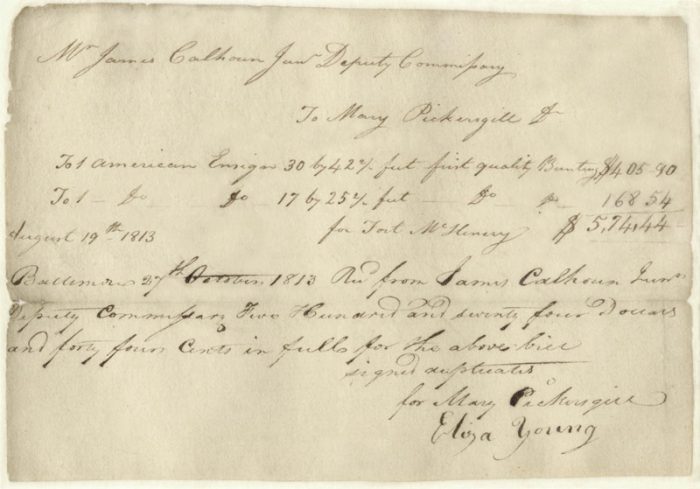 Mr James Calhoun Junr Deputy Commissary
To Mary Pickersgill Dr
To 1 American Ensign 30 by 42 feet first quality Bunting $405.90
To 1 — Do Do 17 by 25 feet — Do 168.54
August 19th 1813 for Fort McHenery $574.44
Baltimore 27th October 1813 Recd from James Calhoun Junr
Deputy Commissary Two Hundred and seventy four Dollars
and forty fours Cents in fulls for the above bill
signed duplicates
for Mary Pickersgill
Eliza Young